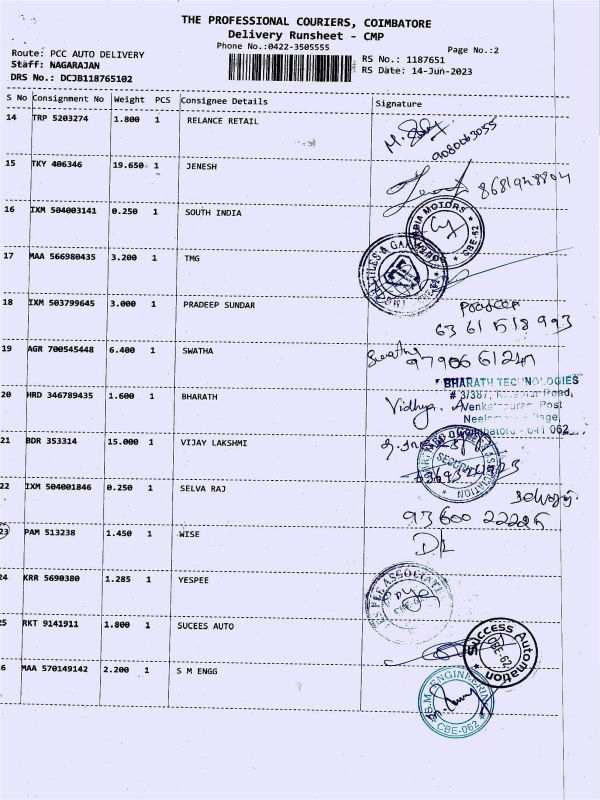 THE PROFESSIONAL COURIERS, COIMBATORE
Delivery Runsheet - CMP
Phone No.:0422-3505555
Page No.:2
Route: PCC AUTO DELIVERY
RS No.: 1187651
Staff: NAGARAJAN
RS Date: 14-Jun-2023
DRS No.: DCJB118765102
S No Consignment No Weight PCS Consignee Details Signature
14 TRP 5203274 1.800 1 RELANCE RETAIL
9080063055
15 TKY 406346 19.650 1 JENESH
16 IXM 504003141 0.250 1 SOUTH INDIA
MOTORS
CBE-62
17 MAA 566980435 3.200 1 TMG
18 IXM 503799645 3.000 1 PRADEEP SUNDAR
Pradeep
19 AGR 700545448 6.400 1 SWATHA
Swatha
20 HRD 346789435 1.600 1 BHARATH
BHARATH TECHNOLOGIES
# 3/387, Road,
Vidhya. Post
641 062
21 BDR 353314 15.000 1 VIJAY LAKSHMI
SECURITY
22 IXM 504001846 0.250 1 SELVA RAJ
Selvaraj
23 PAM 513238 1.450 1 WISE
24 KRR 5690380 1.285 1 YESPEE
25 RKT 9141911 1.800 1 SUCEES AUTO
Success Automation
CBE-62
26 MAA 570149142 2.200 1 S M ENGG
S.M. ENGINEERING
CBE-062